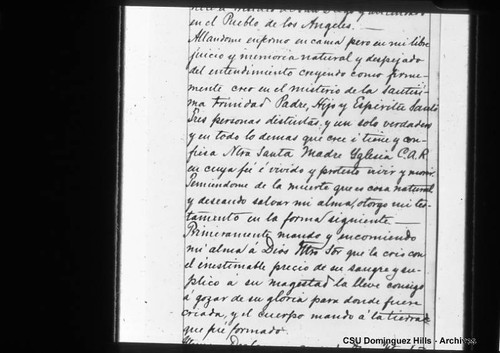 en el Pueblo de los Angeles.
Allandome enfermo en cama pero en mi libre
juicio y memoria natural y despejado
del entendimiento creyendo como firme-
mente creo en el misterio de la Santisi-
ma Trinidad Padre, Hijo y Espiritu Santo
Tres personas distintas y un solo verdadero
y en todo lo demas que cree i tiene y con-
fiesa Ntra Santa Madre Yglesia C.A.R.
en cuya fe é vivido y protesto vivir y morir.
Temiendome de la muerte que es cosa natural
y deseando salvar mi alma, otorgo mi tes-
tamento en la forma siguiente.
Primeramente mando y encomiendo
mi alma á Dios Ntro Sor que la crio con
el inestimable precio de su sangre y su-
plico a su magestad la lleve consigo
á gozar de su gloria para donde fuera
criada, y el cuerpo mando á la tierra de
que fué formado.
CSU Dominguez Hills - Archives